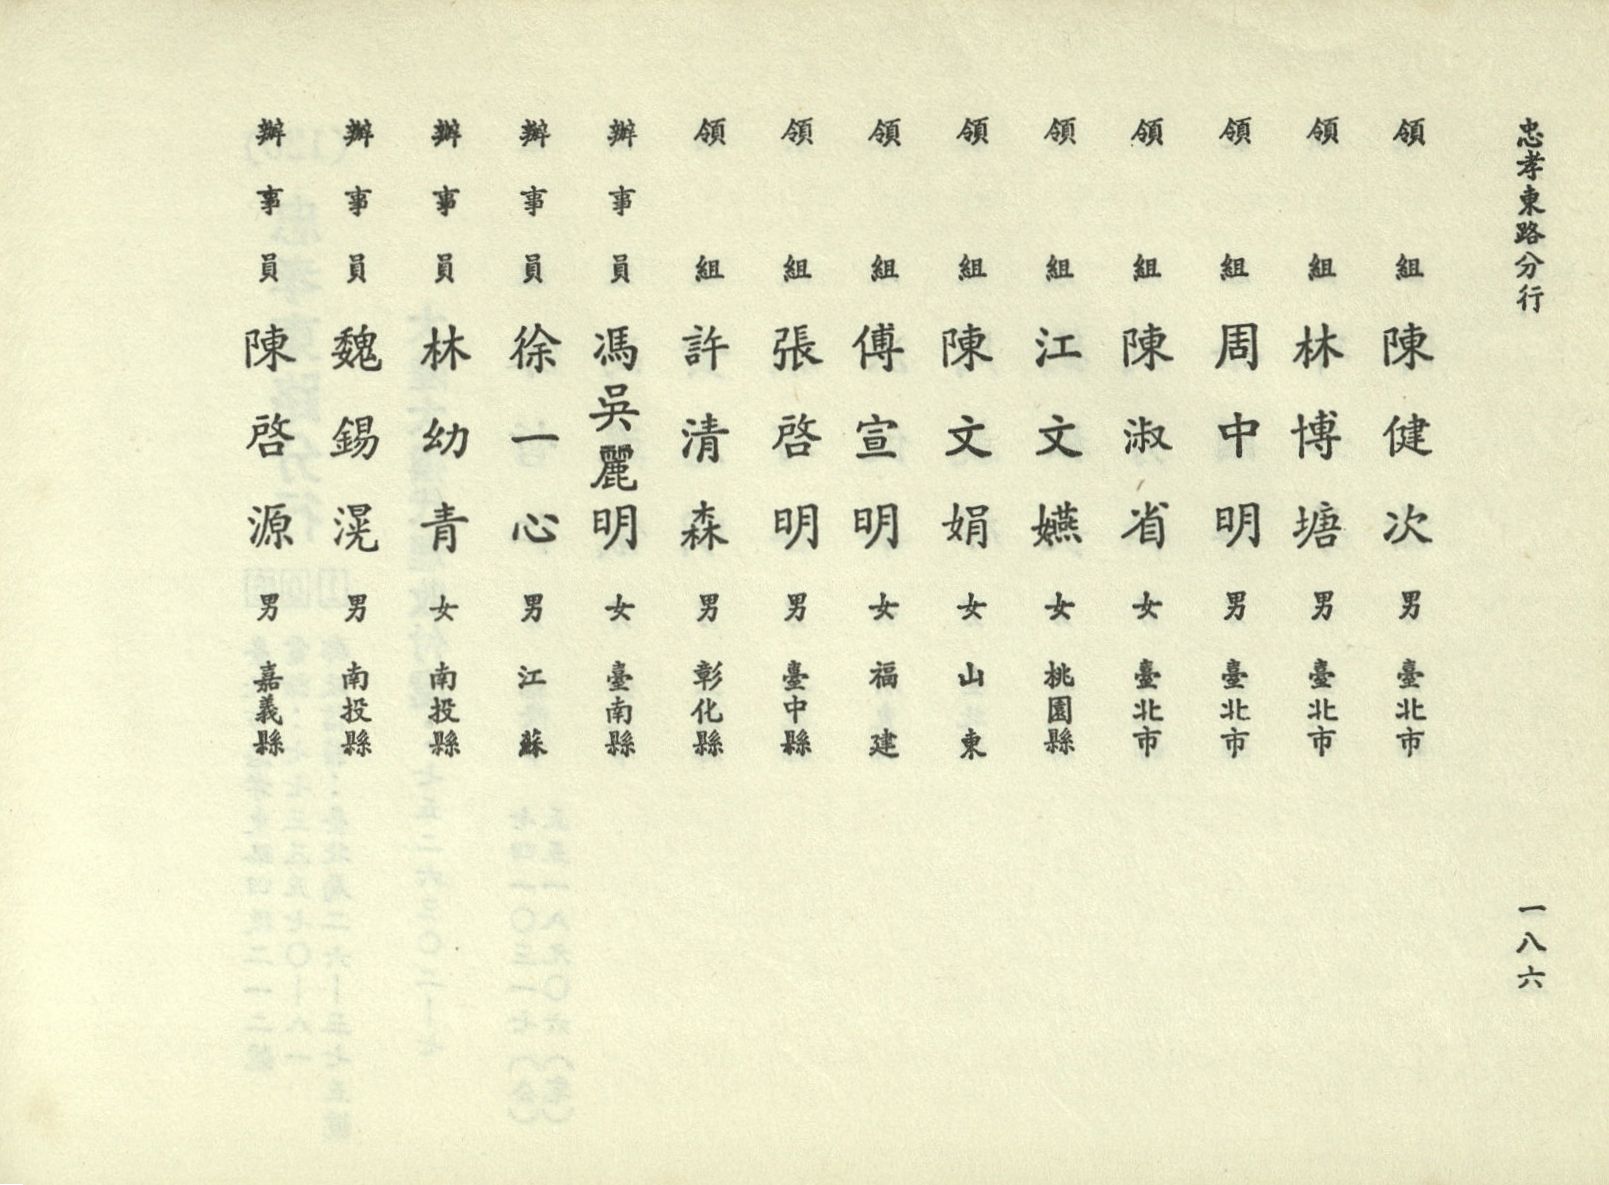 忠孝東路分行 一八六
領組 陳健次 男 臺北市
領組 林博塘 男 臺北市
領組 周中明 男 臺北市
領組 陳淑省 女 臺北市
領組 江文嬿 女 桃園縣
領組 陳文娟 女 山東
領組 傅宣明 女 福建
領組 張啓明 男 臺中縣
領組 許清森 男 彰化縣
辦事員 馮吳麗明 女 臺南縣
辦事員 徐一心 男 江蘇
辦事員 林幼青 女 南投縣
辦事員 魏錫滉 男 南投縣
辦事員 陳啓源 男 嘉義縣